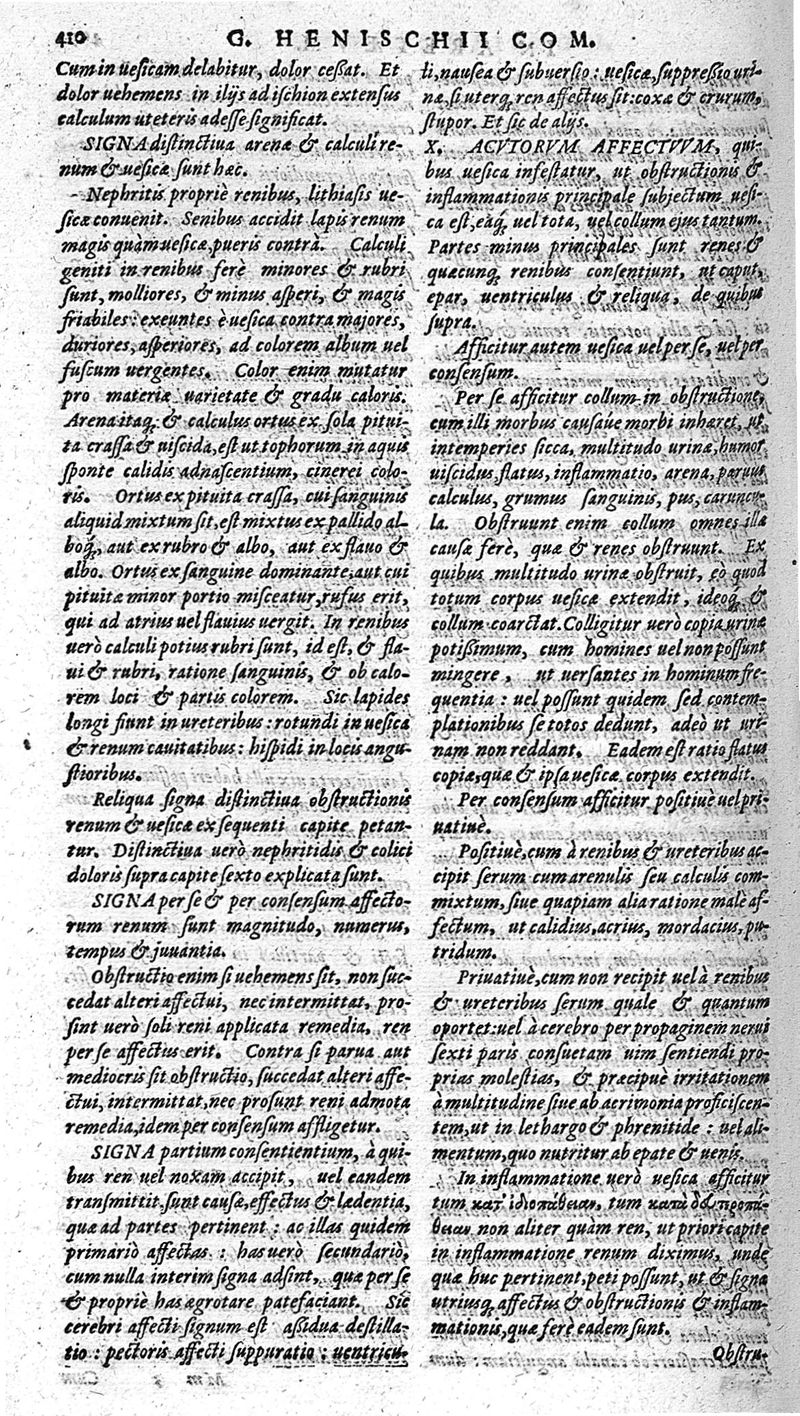 410 G. HENISCHII COM.
Cum in uesicam delabitur, dolor ceßat. Et
dolor uehemens in ilijs ad ischion extensus
calculum uteteris adesse significat.
SIGNA distinctiua arenæ & calculi re-
num & uesicæ sunt hæc.
Nephritis propriè renibus, lithiasis ue-
sicæ conuenit. Senibus accidit lapis renum
magis quàm uesicæ, pueris contrà. Calculi
geniti in renibus ferè minores & rubri
sunt, molliores, & minus asperi, & magis
friabiles: exeuntes è uesica contra majores,
duriores, asperiores, ad colorem album uel
fuscum uergentes. Color enim mutatur
pro materiæ uarietate & gradu caloris.
Arena itaq́; & calculus ortus ex sola pitui-
ta crassa & uiscida, est ut tophorum in aquis
sponte calidis adnascentium, cinerei colo-
ris. Ortus ex pituita crassa, cui sanguinis
aliquid mixtum sit, est mixtus ex pallido al-
boq́;, aut ex rubro & albo, aut ex flauo &
albo. Ortus ex sanguine dominante, aut cui
pituitæ minor portio misceatur, rufus erit,
qui ad atrius uel flauius uergit. In renibus
uerò calculi potius rubri sunt, id est, & fla-
ui & rubri, ratione sanguinis, & ob calo-
rem loci & partis colorem. Sic lapides
longi fiunt in ureteribus: rotundi in uesica
& renum cauitatibus: hispidi in locis angu-
stioribus.
Reliqua signa distinctiua obstructionis
renum & uesicæ ex sequenti capite petan-
tur. Distinctiua uerò nephritidis & colici
doloris supra capite sexto explicata sunt.
SIGNA per se & per consensum affecto-
rum renum sunt magnitudo, numerus,
tempus & juuantia.
Obstructio enim si uehemens sit, non suc-
cedat alteri affectui, nec intermittat, pro-
sint uerò soli reni applicata remedia, ren
per se affectus erit. Contra si parua aut
mediocris sit obstructio, succedat alteri affe-
ctui, intermittat, nec prosunt reni admota
remedia, idem per consensum affligetur.
SIGNA partium consentientium, à qui-
bus ren uel noxam accipit, uel eandem
transmittit, sunt causæ, effectus & lædentia,
quæ ad partes pertinent: ac illas quidem
primariò affectas: has uerò secundariò,
cum nulla interim signa adsint, quæ per se
& propriè has ægrotare patefaciant. Sic
cerebri affecti signum est aßidua destilla-
tio: pectoris affecti suppuratio: uentricu-
li, nausea & subuersio: uesicæ, suppreßio uri-
næ, si uterq; ren affectus sit: coxæ & crurum,
stupor. Et sic de alijs.
X. ACVTORVM AFFECTVVM, qui-
bus uesica infestatur, ut obstructionis &
inflammationis principale subjectum uesi-
ca est, eaq́; uel tota, uel collum ejus tantum.
Partes minus principales sunt renes &
quæcunq; renibus consentiunt, ut caput,
epar, uentriculus & reliqua, de quibus
supra.
Afficitur autem uesica uel per se, uel per
consensum.
Per se afficitur collum in obstructione,
cum illi morbus causáue morbi inhæret, ut
intemperies sicca, multitudo urinæ, humor
uiscidus, flatus, inflammatio, arena, paruus
calculus, grumus sanguinis, pus, caruncu-
la. Obstruunt enim collum omnes illæ
causæ ferè, quæ & renes obstruunt. Ex
quibus multitudo urinæ obstruit, eò quod
totum corpus uesicæ extendit, ideoq́; &
collum coarctat. Colligitur uerò copia urinæ
potißimum, cum homines uel non possunt
mingere, ut uersantes in hominum fre-
quentia: uel possunt quidem sed contem-
plationibus se totos dedunt, adeò ut uri-
nam non reddant. Eadem est ratio flatus
copiæ, quæ & ipsa uesicæ corpus extendit.
Per consensum afficitur positiuè uel pri-
uatiuè.
Positiuè, cum à renibus & ureteribus ac-
cipit serum cum arenulis seu calculis com-
mixtum, siue quapiam alia ratione malè af-
fectum, ut calidius, acrius, mordacius, pu-
tridum.
Priuatiuè, cum non recipit uel à renibus
& ureteribus serum quale & quantum
oportet: uel à cerebro per propaginem nerui
sexti paris consuetam uim sentiendi pro-
prias molestias, & præcipuè irritationem
à multitudine siue ab acrimonia proficiscen-
tem, ut in lethargo & phrenitide: uel ali-
mentum, quo nutritur ab epate & uenis.
In inflammatione uerò uesica afficitur
tum κατ' ἰδιοπάθειαν, tum κατὰ δὲ προπά-
θειαν non aliter quàm ren, ut priori capite
in inflammatione renum diximus, unde
quæ huc pertinent, peti possunt, ut & signa
utriusq; affectus & obstructionis & inflam-
mationis, quæ ferè eadem sunt.
Obstru-